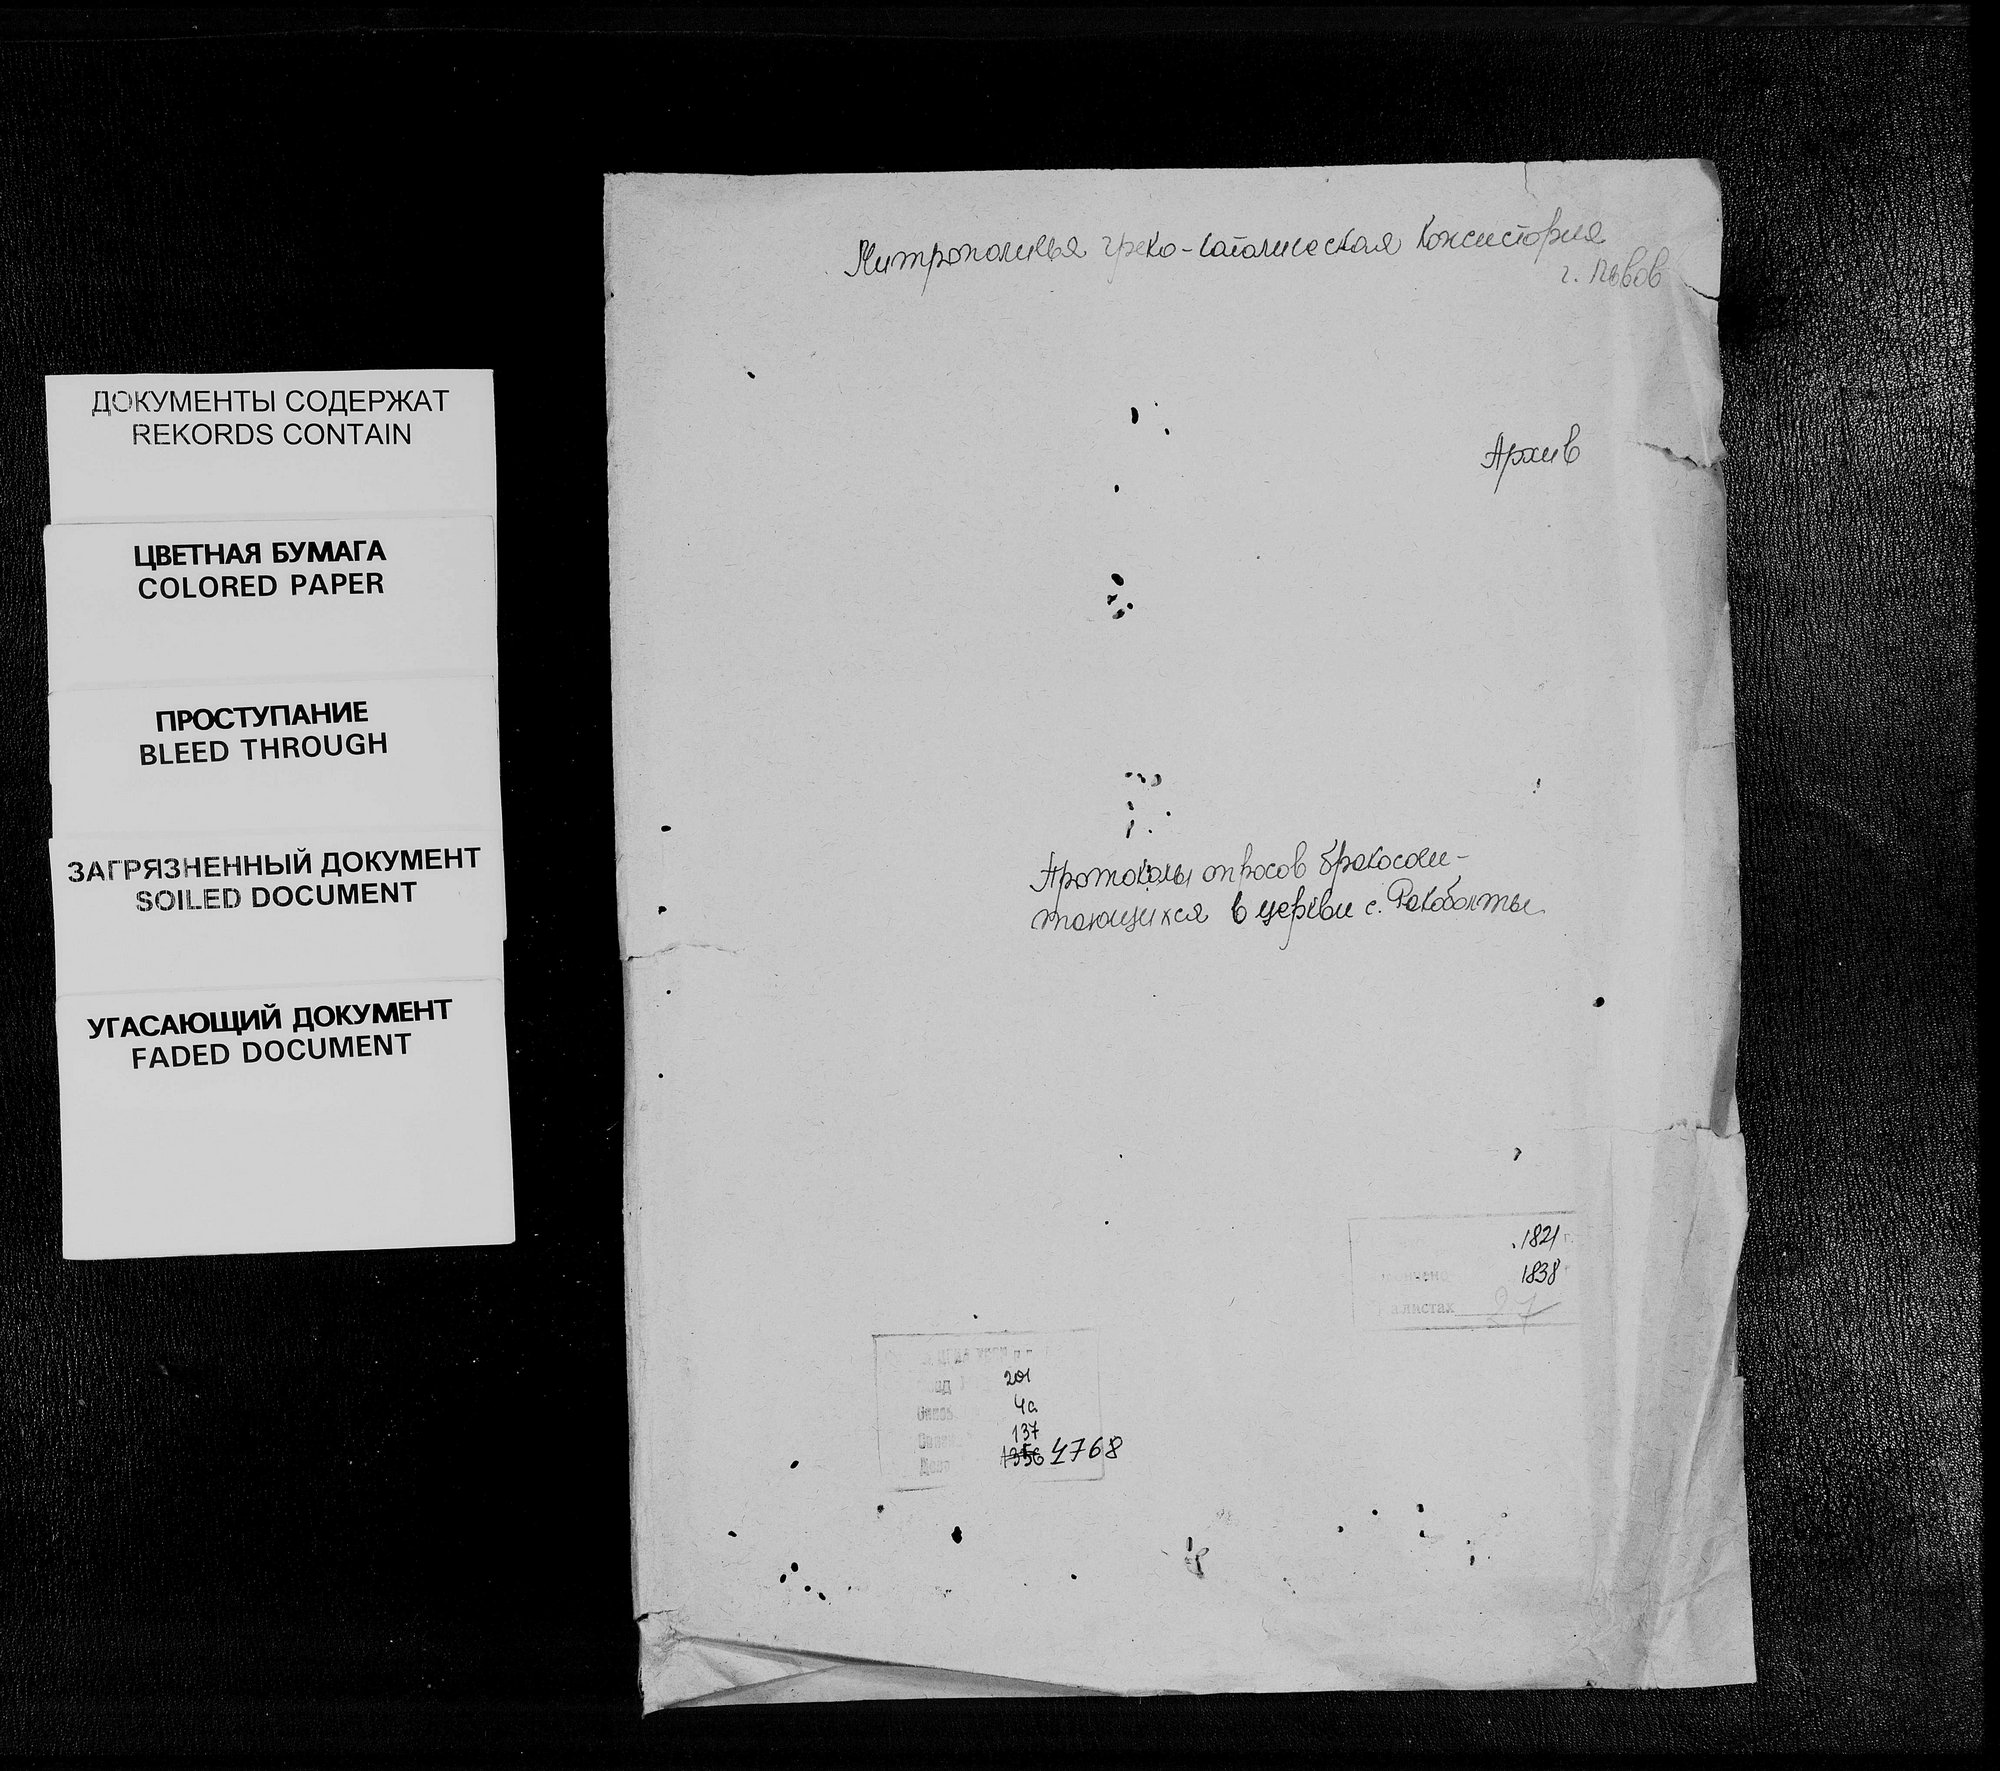 ДОКУМЕНТЫ СОДЕРЖАТ
REKORDS CONTAIN
ЦВЕТНАЯ БУМАГА
COLORED PAPER
ПРОСТУПАНИЕ
BLEED THROUGH
ЗАГРЯЗНЕННЫЙ ДОКУМЕНТ
SOILED DOCUMENT
УГАСАЮЩИЙ ДОКУМЕНТ
FADED DOCUMENT
Митрополичья греко-католическая Консистория
г. Львов
Архив
Протоколы опросов бракосоче-
тающихся в церкви с. Рекобонты
1821 г.
1838
листах 27
201
4а
137
1356 4768